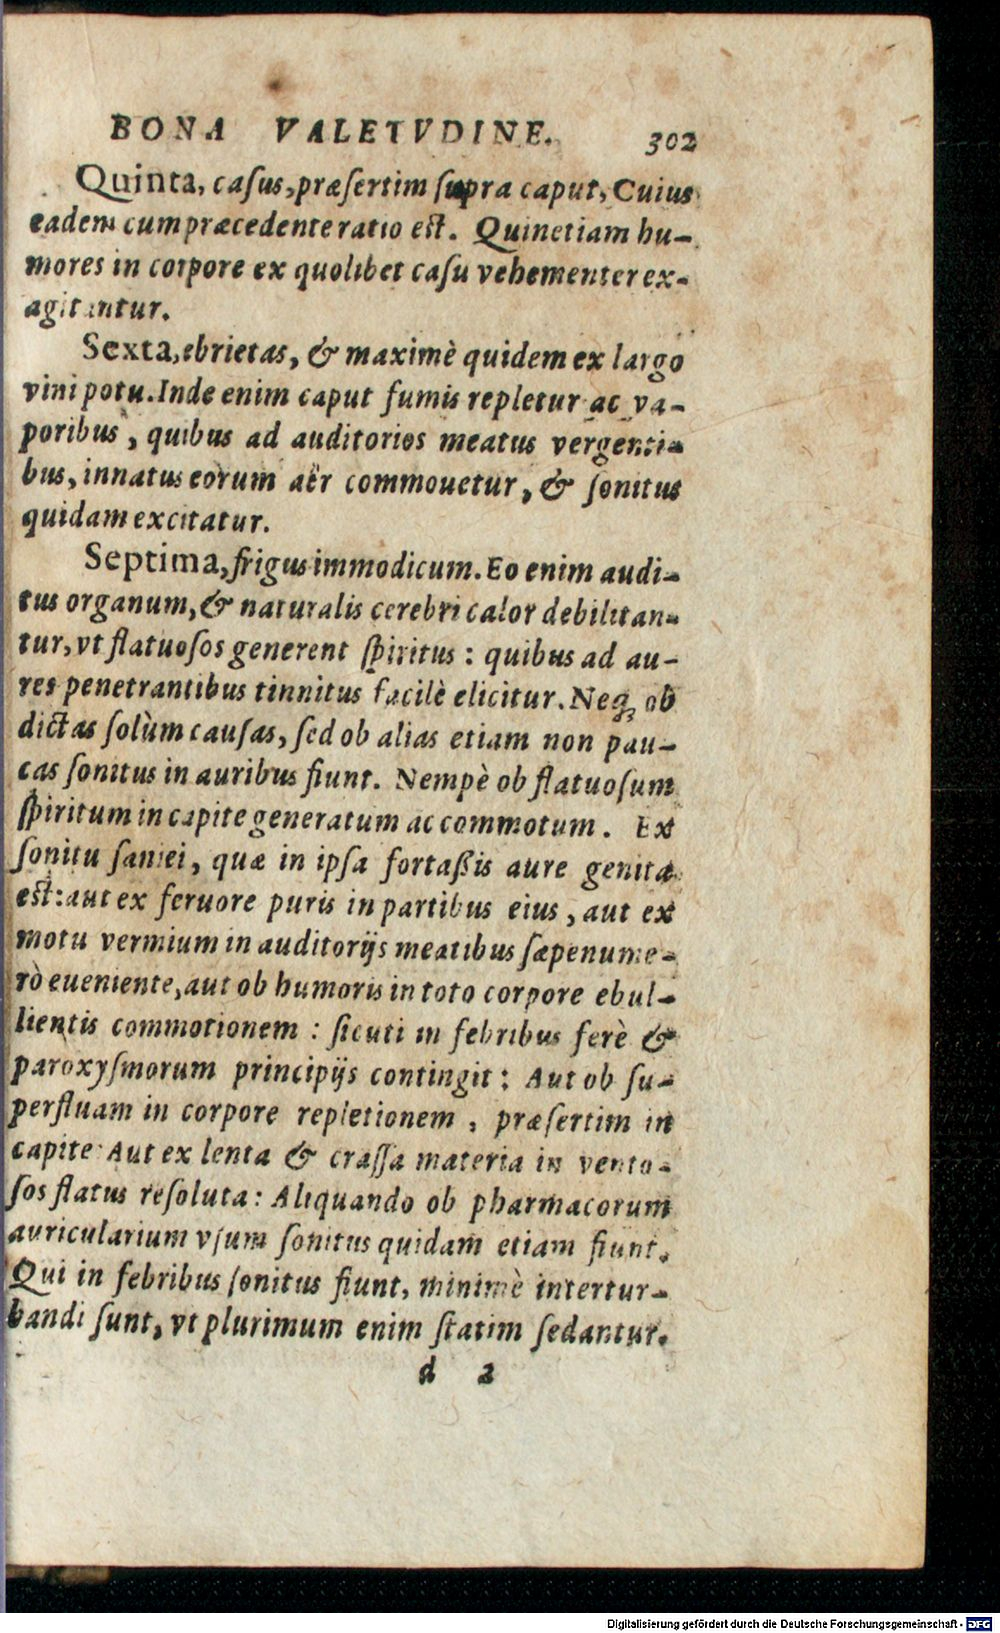 BONA VALETVDINE. 302
Quinta, casus, præsertim supra caput, Cuius
eadem cum præcedente ratio est. Quinetiam hu-
mores in corpore ex quolibet casu vehementer ex-
agitantur.
Sexta, ebrietas, & maximè quidem ex largo
vini potu. Inde enim caput fumis repletur ac va-
poribus, quibus ad auditorios meatus vergenti-
bus, innatus eorum aër commouetur, & sonitus
quidam excitatur.
Septima, frigus immodicum. Eo enim audi-
tus organum, & naturalis cerebri calor debilitan-
tur, vt flatuosos generent spiritus: quibus ad au-
res penetrantibus tinnitus facilè elicitur. Neq; ob
dictas solùm causas, sed ob alias etiam non pau-
cas sonitus in auribus fiunt. Nempè ob flatuosum
spiritum in capite generatum ac commotum. Ex
sonitu saniei, quæ in ipsa fortaßis aure genita
est: aut ex feruore puris in partibus eius, aut ex
motu vermium in auditorijs meatibus sæpenume-
rò eueniente, aut ob humoris in toto corpore ebul-
lientis commotionem: sicuti in febribus ferè &
paroxysmorum principijs contingit: Aut ob su-
perfluam in corpore repletionem, præsertim in
capite Aut ex lenta & crassa materia in vento-
sos flatus resoluta: Aliquando ob pharmacorum
auricularium vsum sonitus quidam etiam fiunt.
Qui in febribus sonitus fiunt, minimè intertur-
bandi sunt, vt plurimum enim statim sedantur.
d 2
Digitalisierung gefördert durch die Deutsche Forschungsgemeinschaft - DFG